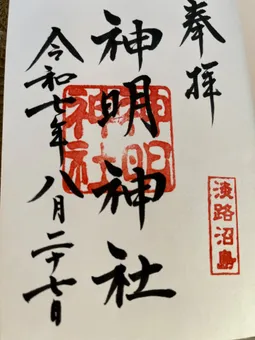 奉拝
淡路沼島
神明神社
神明神社
令和七年八月二十七日